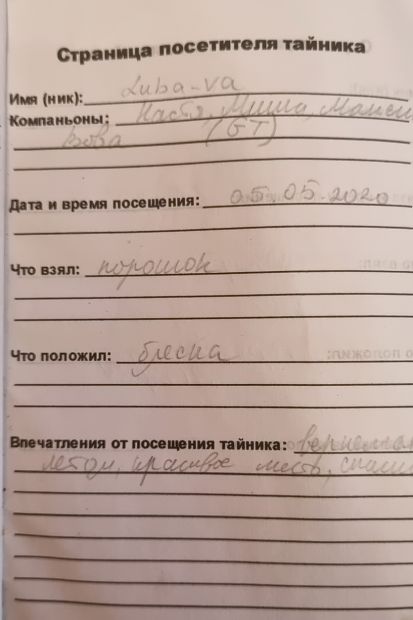 Страница посетителя тайника
Имя (ник): Luba-va
Компаньоны: Настя, Миша,
Вова (GT)
Дата и время посещения: 05.05.2020
Что взял: порошок
Что положил: блесна
Впечатления от посещения тайника:
летом, красивое место,